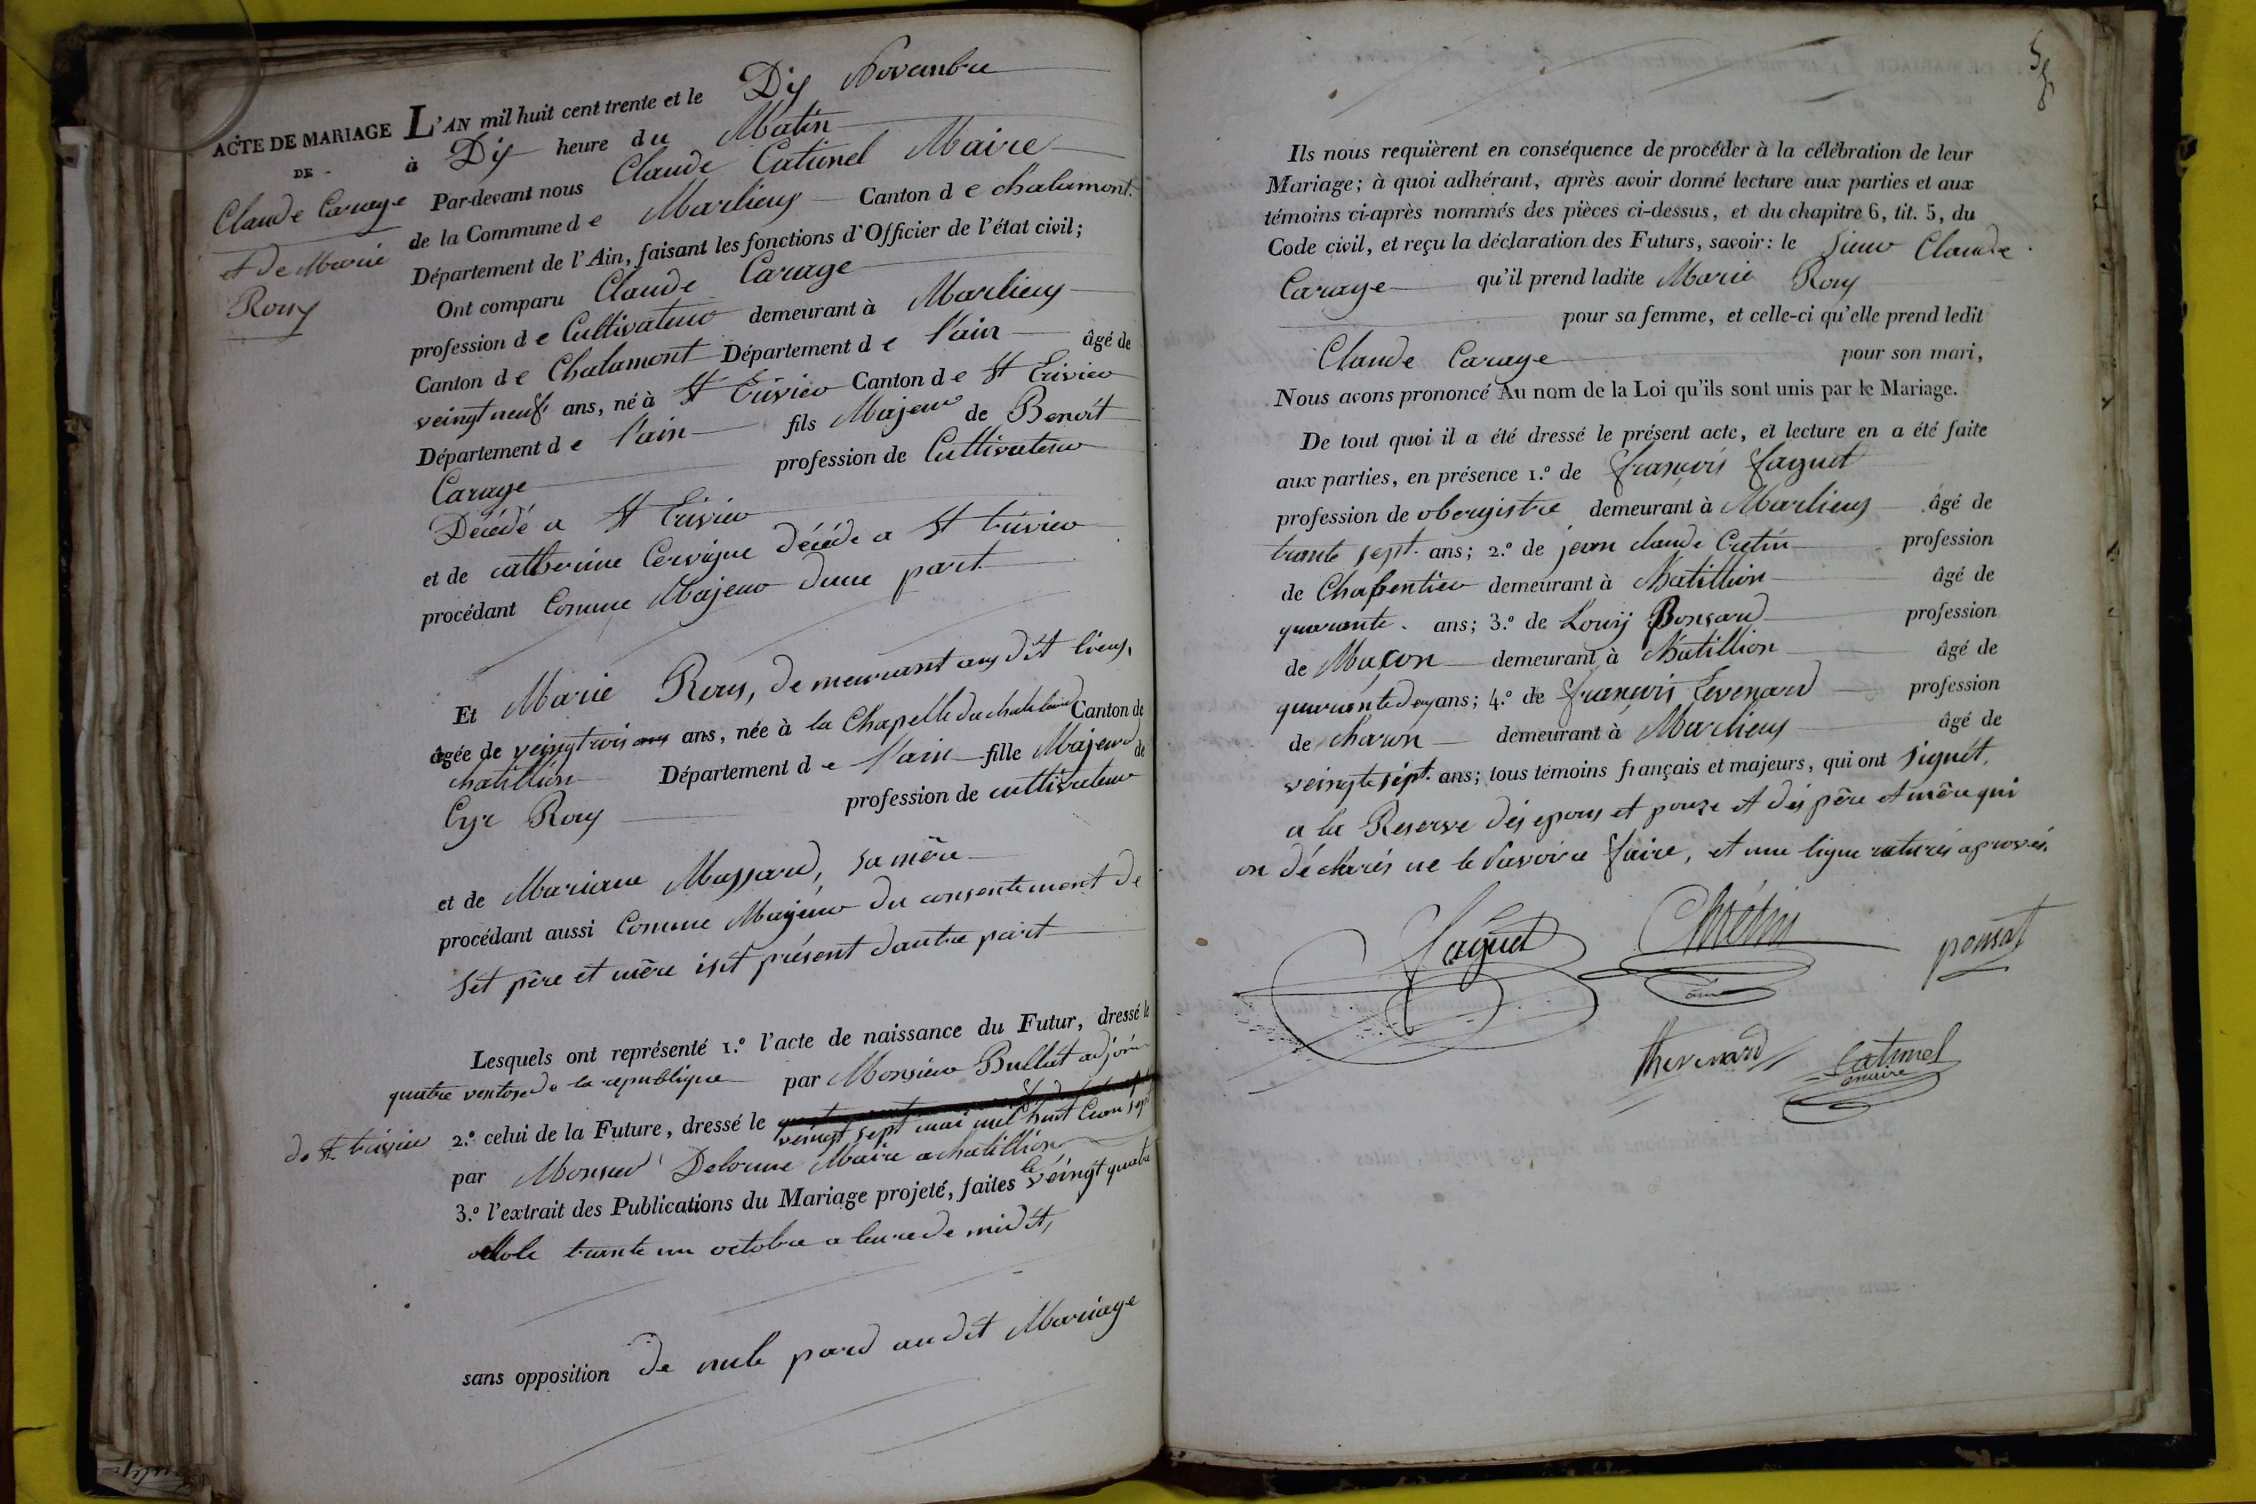 ACTE DE MARIAGE
DE
Claude Carage
et de Marie
Rouy
L'AN mil huit cent trente et le Dix Novembre
à Dix heure du Matin
Par-devant nous Claude Catimel Maire
de la Commune de Marlieux Canton de chalamont.
Département de l'Ain, faisant les fonctions d'Officier de l'état civil;
Ont comparu Claude Carage
profession de Cultivateur demeurant à Marlieux
Canton de Chalamont Département de l'ain âgé de
veingt neuf ans, né à St Trivier Canton de St Trivier
Département de l'ain fils Majeur de Benoît
Carage profession de Cultivateur
Décédé a St Trivier
et de catherine Cervigne décéde a St trivier
procédant Comme Majeur dune part
Et Marie Rouy, demeurant aux dit lieux,
âgée de veingtrois ans ans, née à la Chapelle du chatelard Canton de
chatillion Département de l'ain fille Majeur de
Cyr Rouy profession de cultivateur
et de Mariane Massard, sa mère
procédant aussi Comme Majeur du consentement de
set père et mère isit présent dautre part
Lesquels ont représenté 1.º l'acte de naissance du Futur, dressé le
quatre ventose de la republique par Monsieur Bullat adjoin
de St trivier
2.º celui de la Future, dressé le
veingt sept mai mil huit Cent sept
par Monsieur Delorme Maire a chatillion
3.º l'extrait des Publications du Mariage projeté, faites le veingt quatre
trante un octobre a leure de midit,
sans opposition de nule pard audit Mariage
58
Ils nous requièrent en conséquence de procéder à la célébration de leur
Mariage; à quoi adhérant, après avoir donné lecture aux parties et aux
témoins ci-après nommés des pièces ci-dessus, et du chapitre 6, tit. 5, du
Code civil, et reçu la déclaration des Futurs, savoir: le sieur Claude
Carage qu'il prend ladite Marie Rouy
pour sa femme, et celle-ci qu'elle prend ledit
Claude Carage pour son mari,
Nous avons prononcé Au nom de la Loi qu'ils sont unis par le Mariage.
De tout quoi il a été dressé le présent acte, et lecture en a été faite
aux parties, en présence 1.º de françois faguet
profession de obergistre demeurant à Marlieux âgé de
trante sept ans; 2.º de jean claude Cretin profession
de Charpentier demeurant à Chatillion âgé de
quarante ans; 3.º de Louis Ponsard profession
de Maçon demeurant à Chatillion âgé de
quarante deux ans; 4.º de françois Tevenard profession
de charon demeurant à Marlieux âgé de
veingte sept ans; tous témoins français et majeurs, qui ont signét,
a la Reserve des epoux et pouze et des père et mère qui
on déclarés ne le savoire faire, et une ligne raturés aprovés.
faguet
Crétin
ainé
ponsat
thevenard
Catimel
maire